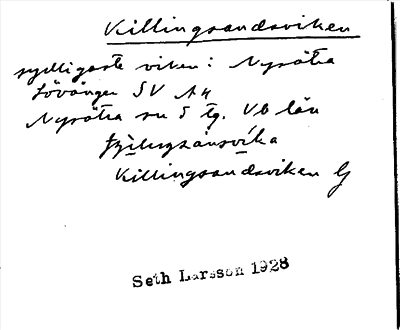 Killingsandsviken
sydligaste viken i Nysätra
Lövånger SV A4
Nysätra sn S tg. Vb län
Killingsandsviken G
Seth Larsson 1928